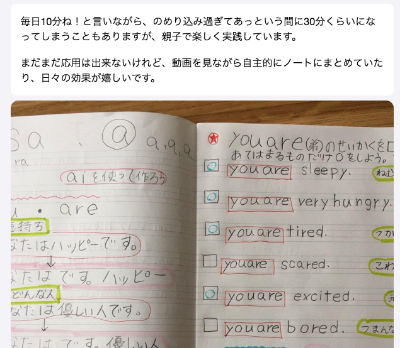 毎日10分ね！と言いながら、のめり込み過ぎてあっという間に30分くらいにな
ってしまうこともありますが、親子で楽しく実践しています。
まだまだ応用は出来ないけれど、動画を見ながら自主的にノートにまとめていた
り、日々の効果が嬉しいです。
sa . ⓐ a, a, a
ra
a を使って作ろう
u • are
気持ち
なたはハッピーです。
↓
なたは です。 ハッピー
どんな人
なたは優しい人です。
↓
なたは です。 優しい
you are (弟)のせいかくを
あてはまるものだけ○をしよう。
you are sleepy.
you are very hungry.
you are tired.
you are scared.
you are excited.
you are bored.